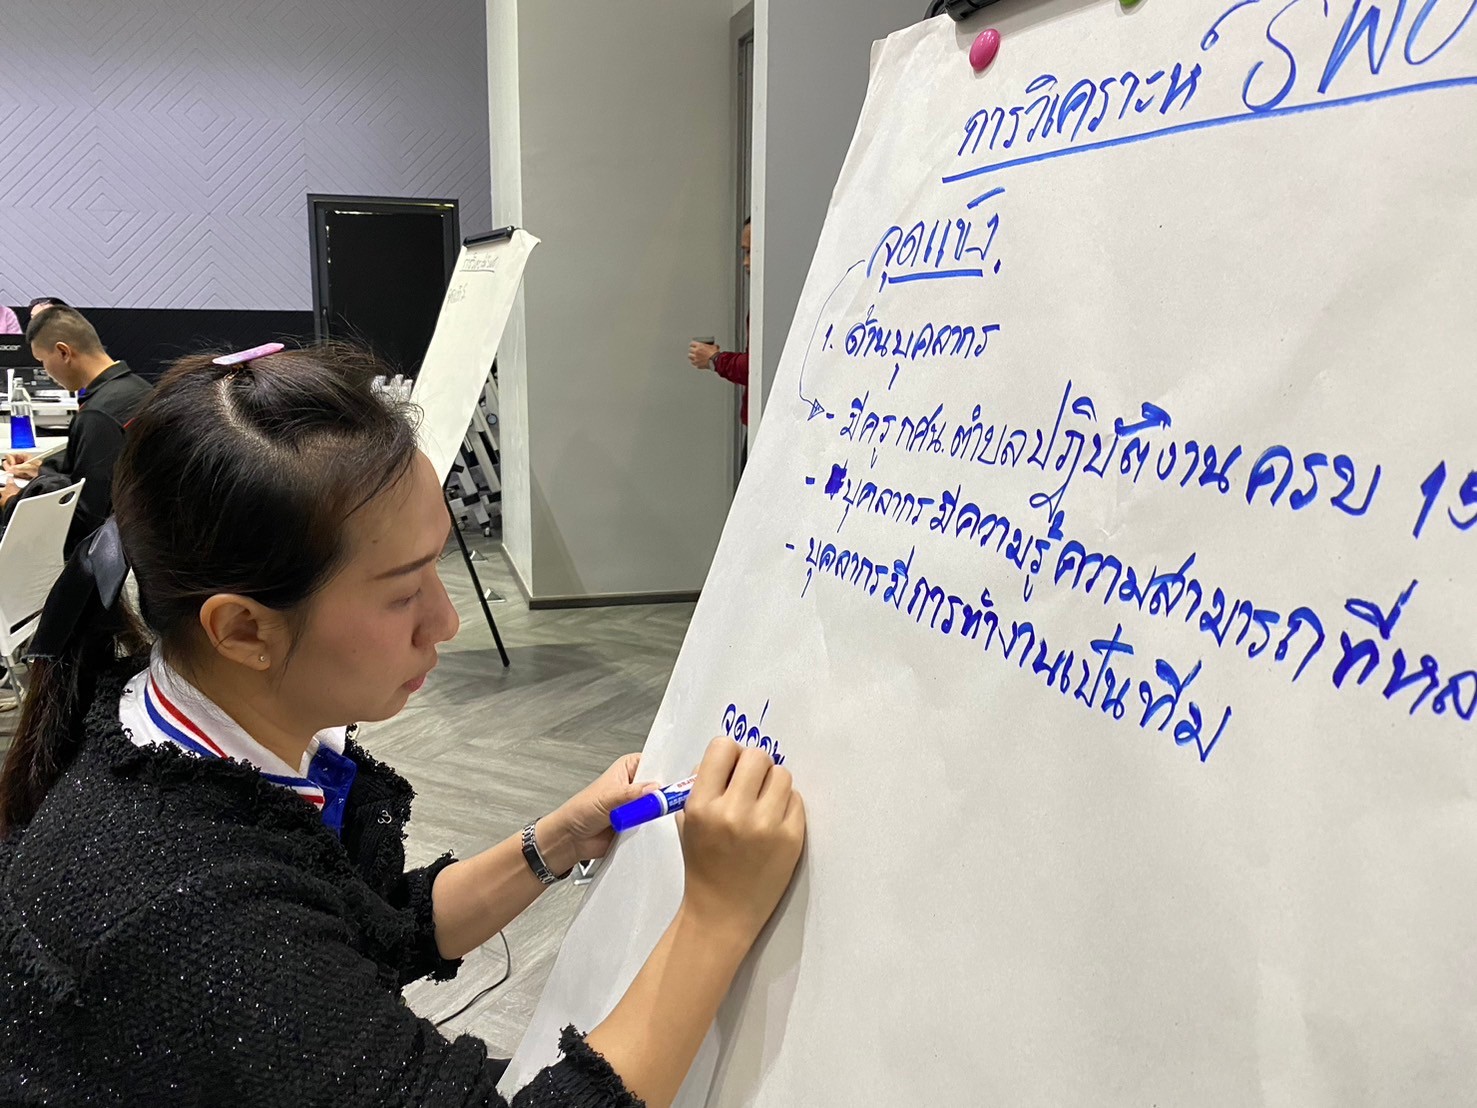 การวิเคราะห์ SWO
จุดแข็ง
1. ด้านบุคลากร
- มีครู กศน.ตำบลปฏิบัติงานครบ 15
- บุคลากรมีความรู้ความสามารถที่หล
- บุคลากรมีการทำงานเป็นทีม
จุดอ่อน
acer